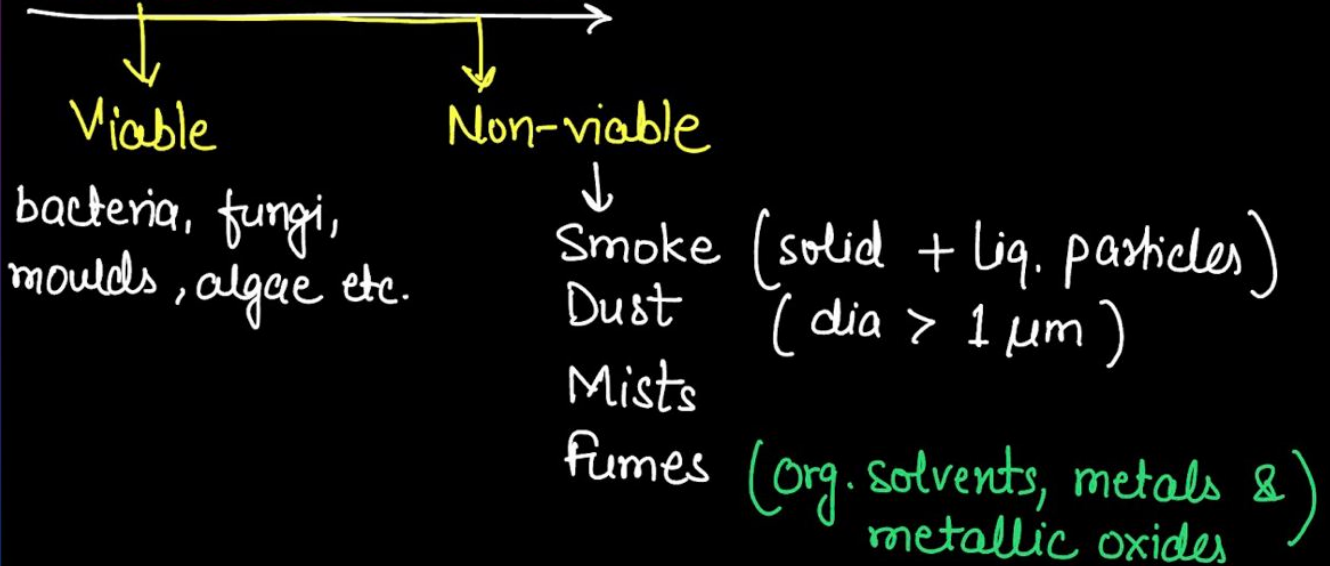 Viable
Non-viable
bacteria, fungi,
moulds, algae etc.
Smoke (solid + Liq. particles)
Dust (dia > 1 μm)
Mists
fumes (Org. solvents, metals &
metallic oxides)